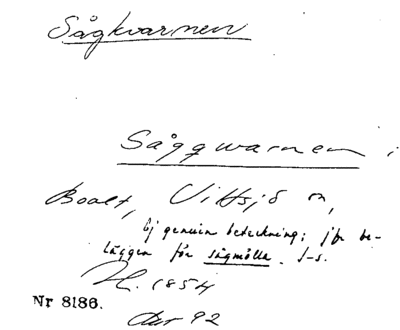 Sågkvarnen
Såggwarnen i
Boalt, Vittsjö sn,
Ej genuin beteckning; jfr be-
läggen för sågmölla. I-s.
H. 1854
Nr 8186.
92